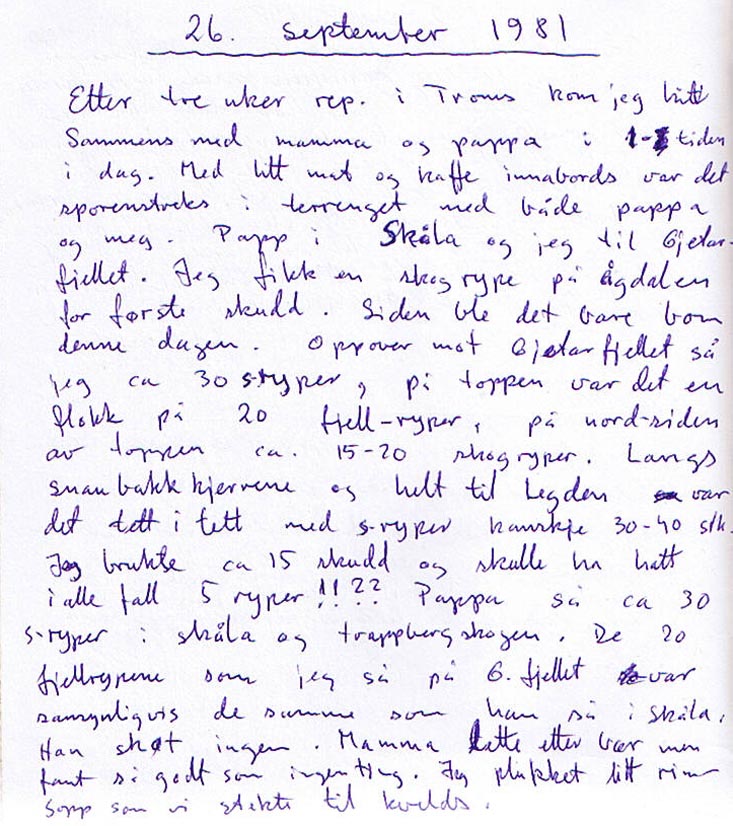 26. september 1981
Etter tre uker rep. i Troms kom jeg hitt
Sammens med mamma og pappa i 1-3 tiden
i dag. Med litt mat og kaffe innabords var det
sporenstreks i terrenget med både pappa
og meg. Papp i Skåla og jeg til Gjetar-
fjellet. Jeg fikk en skogrype på Ågdalen
for første skudd. Siden ble det bare bom
denne dagen. Oppover mot Gjetarfjellet så
jeg ca 30 s-ryper, på toppen var det en
flokk på 20 fjell-ryper, på nord-siden
av toppen ca. 15-20 skogryper. Langs
snaubakkhjervene og helt til Legden var
det tett i tett med s-ryper kanskje 30-40 stk.
Jeg brukte ca 15 skudd og skulle ha hatt
i alle fall 5 ryper!!?? Pappa så ca 30
s-ryper i skåla og trappbergskogen. De 20
fjellrypene som jeg så på G.fjellet var
sansynligvis de samme som han så i Skåla.
Han skøt ingen. Mamma lette etter bær men
fant så godt som ingenting. Jeg plukket litt rim-
sopp som vi stekte til kvelds.